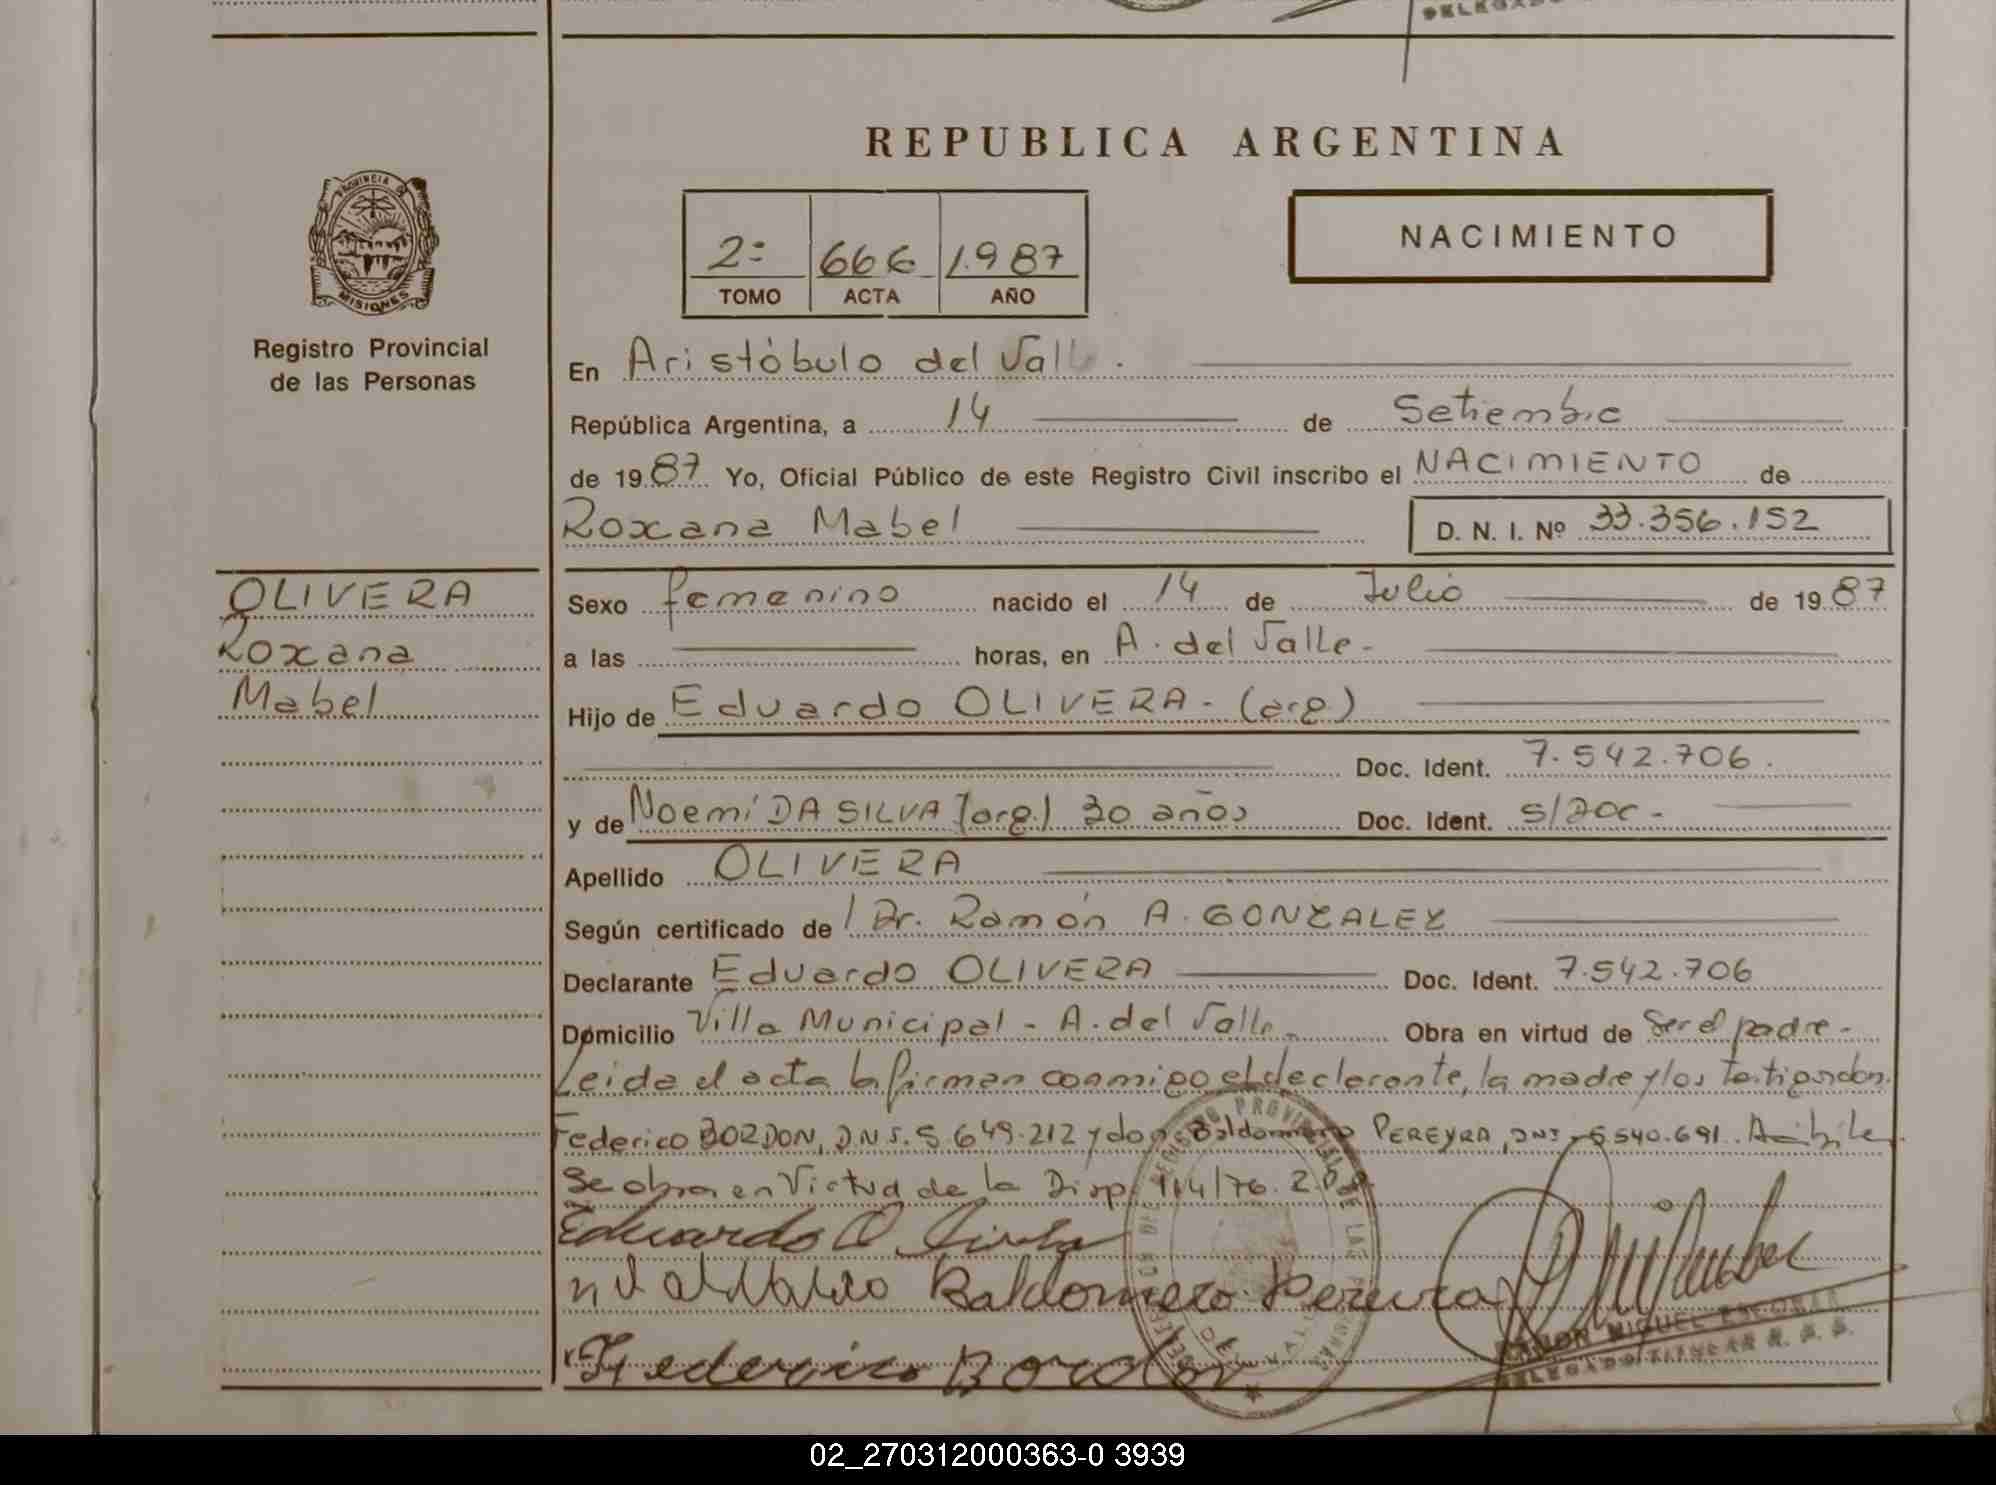 DELEGADO
REPUBLICA ARGENTINA
PROVINCIA DE
MISIONES
Registro Provincial
de las Personas
2º 666 1.987
TOMO ACTA AÑO
NACIMIENTO
En Aristóbulo del Valle.
República Argentina, a 14 de Setiembre
de 1987 Yo, Oficial Público de este Registro Civil inscribo el NACIMIENTO de
Roxana Mabel D. N. I. Nº 33.356.152
OLIVERA
Roxana
Mabel
Sexo femenino nacido el 14 de Julio de 1987
a las horas, en A. del Valle-
Hijo de Eduardo OLIVERA - (arg)
Doc. Ident. 7.542.706.
y de Noemí DA SILVA (arg.) 30 años Doc. Ident. s/Doc-
Apellido OLIVERA
Según certificado de Dr. Ramón A. GONZALEZ
Declarante Eduardo OLIVERA Doc. Ident. 7.542.706
Domicilio Villa Municipal - A. del Valle - Obra en virtud de Ser el padre -
Leida el acta la firman conmigo el declarante, la madre y los testigos don
Federico BORDON, D.N.I. 5.649.212 y don Baldomero PEREYRA, DNI 5.540.691.
Se obra en Virtud de la Disp. 114/76.
Eduardo O.
Baldomero Pereira
Federico Bordon
RAMON MIGUEL ESCOBAR
DELEGADO TITULAR
02_270312000363-0 3939